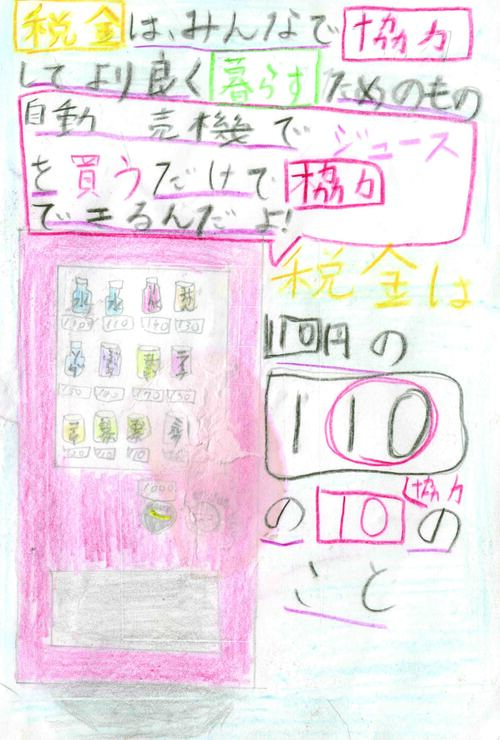 税金は、みんなで協力
してより良く暮らすためのもの
自動売機でジュース
を買うだけで協力
できるんだよ!
税金は
110円の
110
の10の
協力
こと
110
140
130
170
1000